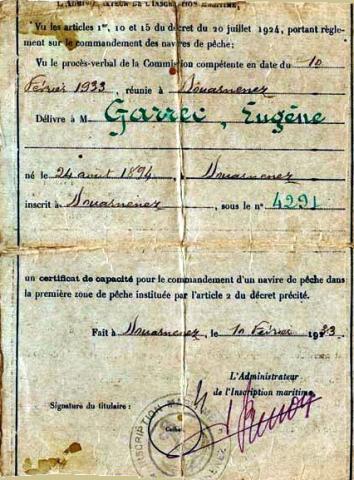 L'ADMINISTRATEUR DE L'INSCRIPTION MARITIME,
Vu les articles 1er, 10 et 15 du décret du 20 juillet 1924, portant règle-
ment sur le commandement des navires de pêche;
Vu le procès-verbal de la Commission compétente en date du 10
Février 1933, réunie à Douarnenez
Délivre à M Garrec, Eugène
né le 24 août 1894, à Douarnenez
inscrit à Douarnenez, sous le n° 4291
un certificat de capacité pour le commandement d'un navire de pêche dans
la première zone de pêche instituée par l'article 2 du décret précité.
Fait à Douarnenez, le 10 Février 1933
L'Administrateur
de l'Inscription maritime,
Signature du titulaire :
INSCRIPTION
Cachet